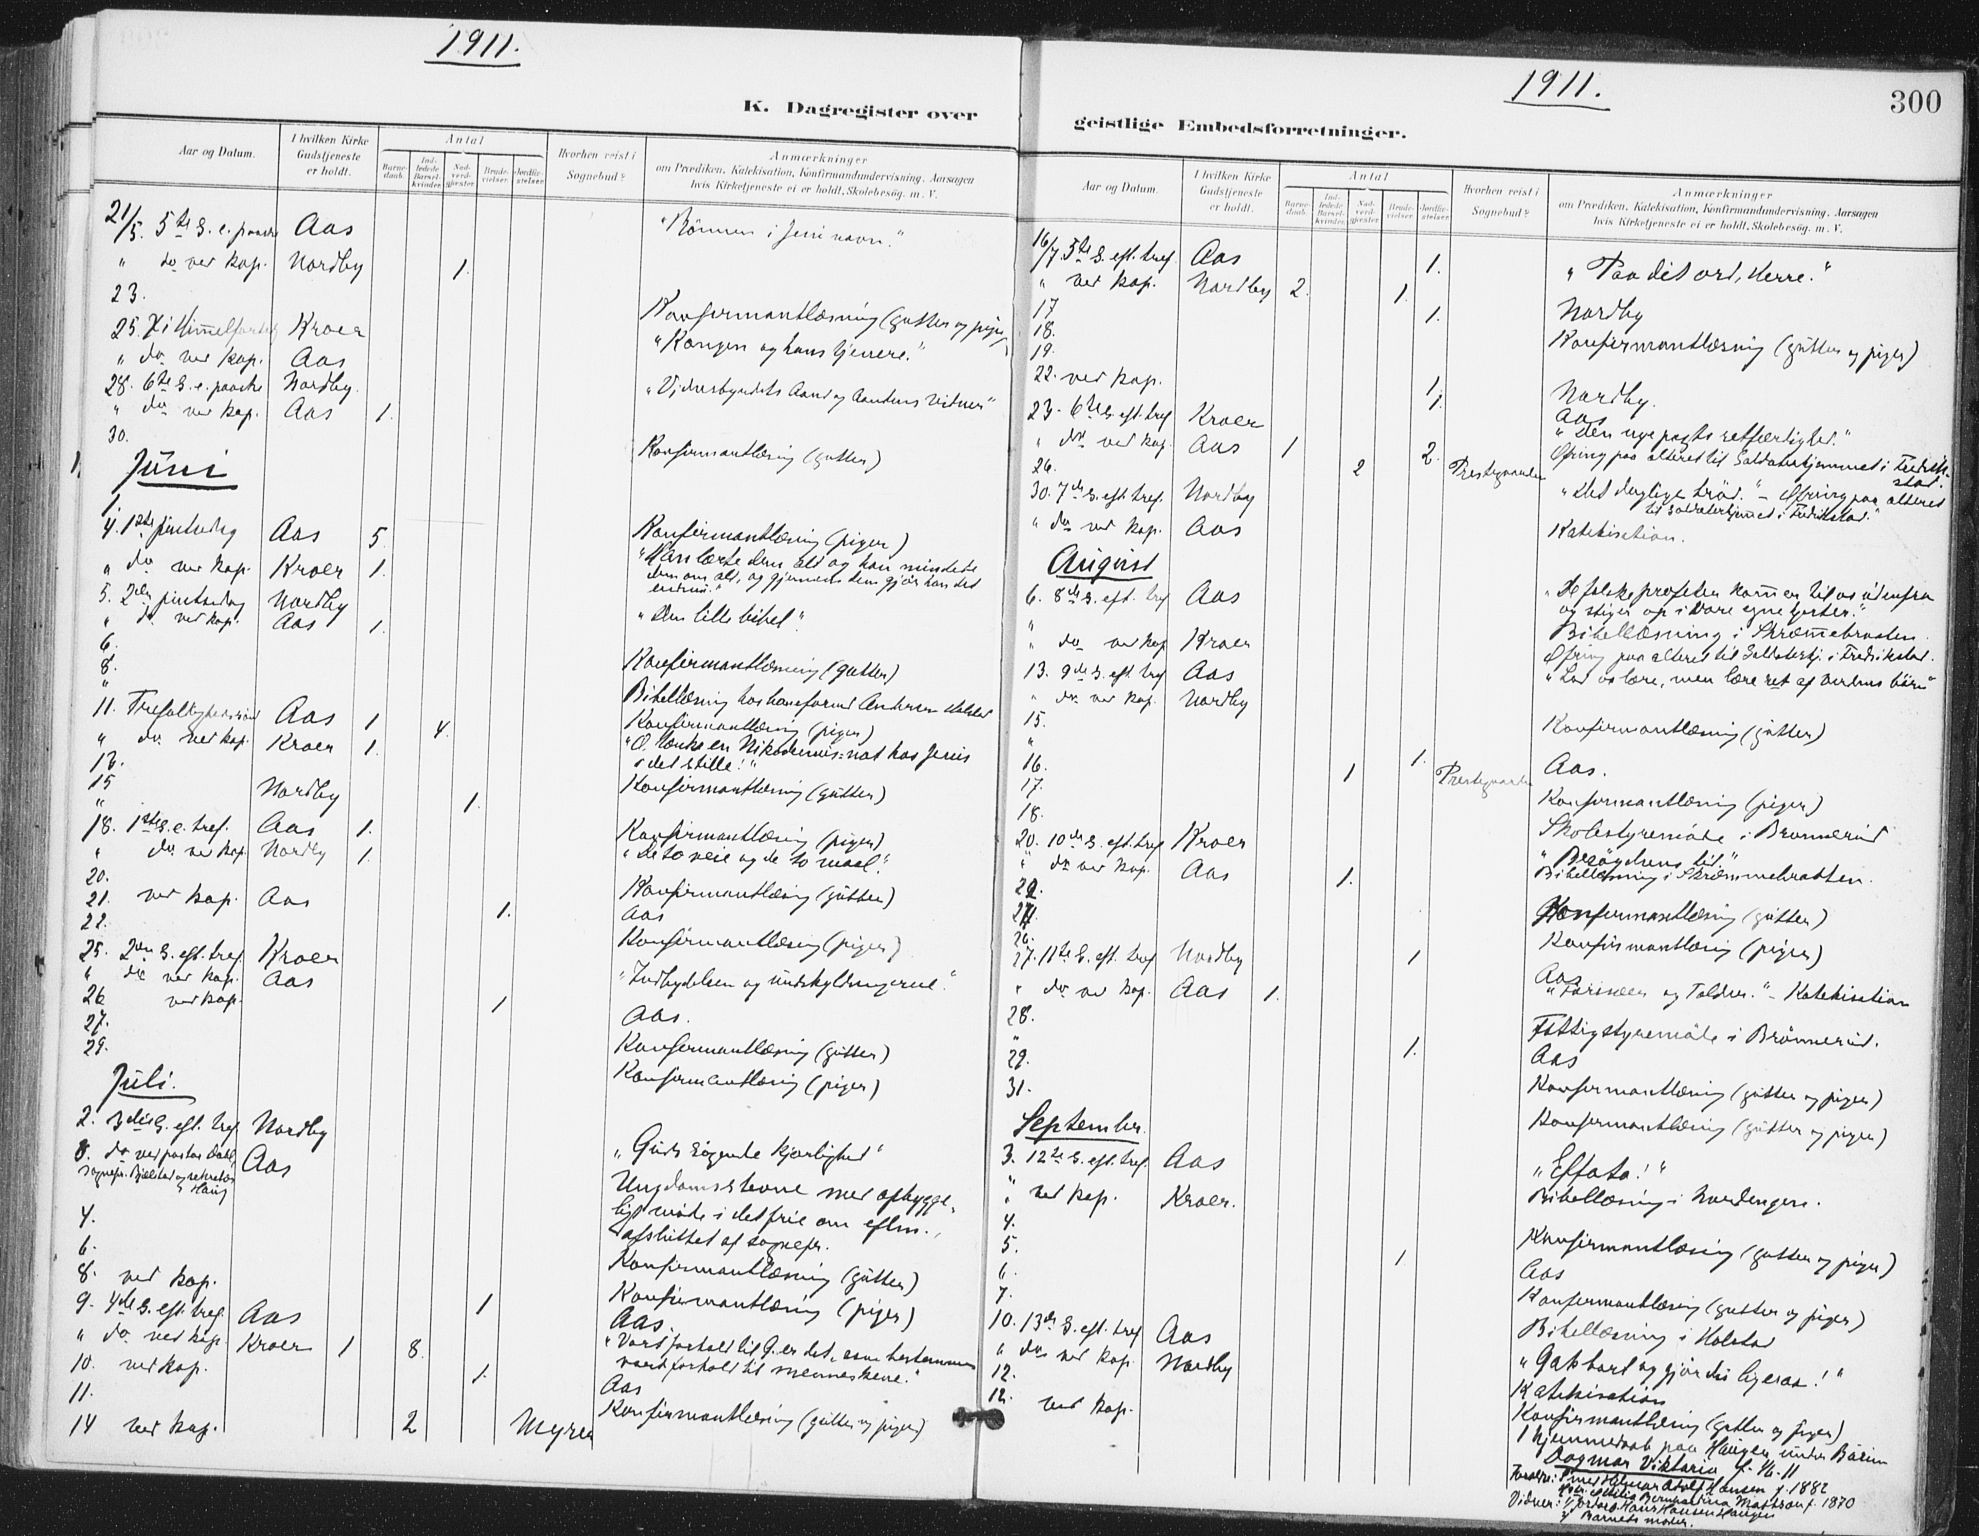 1911.
K. Dagregister over
Aar og Datum.
I hvilken Kirke Gudstjeneste er holdt.
Antal
Barne-daab.
Ind-ledede Barsel-kvinder.
Nad-verd-gjester.
Brude-vielser.
Jordfæ-stelser.
Hvorhen reist i Sognebud?
Anmærkninger
om Prædiken, Katekisation, Konfirmandundervisning, Aarsagen
hvis Kirketjeneste ei er holdt, Skolebesøg. m. V.
21/5. 5te S. e. paaske Aas "Bønnen i Jesu navn."
" do ved kap. Nordby 1.
23. Konfirmantlæsning (gutter og piger)
25. Kr. Himmelfartsdag Kroer "Kongen og hans tjenere."
" do ved kap. Aas
28. 6te S. e. paaske Nordby. "Vidnesbyrdets Aand og Aandens vidner"
" do ved kap. Aas 1.
30. Konfirmantlæsning (gutter)
Juni
1. Konfirmantlæsning (piger)
4. 1ste pintsedag Aas 5. "Han lærte dem alt og han mindede
dem om alt, og gjennem dem gjør han det
endnu."
" do ved kap. Kroer 1.
5. 2den pintsedag Nordby "Den lille bibel".
" do ved kap. Aas 1.
6. Konfirmantlæsning (gutter)
8. Bibellæsning hos
" Konfirmantlæsning (piger)
11. Trefoldighedssønd. Aas 1 4. "O, tænk en Nikodemus-nat hos Jesus
i det stille!"
" do ved kap. Kroer 1.
13. Konfirmantlæsning (gutter)
15 Nordby 1.
" Konfirmantlæsning (piger)
18. 1ste S. e. tref. Aas 1. "De to veie og de to maal".
" do ved kap. Nordby 1.
20. Konfirmantlæsning (gutter)
21. ved kap. Aas 1. Aas
22. Konfirmantlæsning (piger)
25. 2den S. eft. tref. Kroer "Indbydelsen og undskyldningerne."
" do ved kap. Aas
26 ved kap. 1 Aas.
27. Konfirmantlæsning (gutter)
29. Konfirmantlæsning (piger)
Juli.
2. 3die S. eft. tref. Nordby "Guds søgende kjærlighed"
do ved pastor Dahl, Aas Ungdomsstevne med opbygge-
sognepr. Bjelstad og sekretær
Haug
ligt møde i det frie om eftm.,
afsluttet af sognepr.
4. Konfirmantlæsning (gutter)
6. Konfirmantlæsning (piger)
8. ved kap. 1 Aas.
9. 4de S. eft. tref. Aas "Vort forhold til G. er det, som bestemmer
vort forhold til menneskene."
" do ved kap. Kroer 1 8.
10. ved kap. 1. Aas
11. Konfirmantlæsning (gutter og piger)
14 ved kap. 2 Myrer
1911.
300
geistlige Embedsforretninger.
Aar og Datum.
I hvilken Kirke Gudstjeneste er holdt.
Antal
Barne-daab.
Ind-ledede Barsel-kvinder.
Nad-verd-gjester.
Brude-vielser.
Jordfæ-stelser.
Hvorhen reist i Sognebud?
Anmærkninger
om Prædiken, Katekisation, Konfirmandundervisning, Aarsagen
hvis Kirketjeneste ei er holdt, Skolebesøg. m. V.
16/7. 5te S. eft. tref. Aas 1. "Paa dit ord, Herre."
" ved kap. Nordby 2. 1.
17 1. Nordby
18. Konfirmantlæsning (gutter og piger)
19.
22. ved kap. 1. Nordby.
23. 6te S. eft. tref. Kroer 1. Aas
"Den nye pagts retfærdighed."
" do ved kap. Aas 1 2. Ofring paa alteret til Soldaterhjemmet i Fredrik-
stad.
26. 2 Prestegaarden
30. 7de S. eft. tref. Nordby "Det daglige brød." – Ofring paa alteret
til Soldaterhjemmet i Fredrikstad."
" do ved kap. Aas Katekisation.
August
6. 8de S. eft. tref Aas "De falske profeter kommer til os udenfra
og stiger op i vore egne hjerter."
" Bibellæsning i Skræmebraaten.
do ved kap Kroer Ofring paa alteret til Soldaterhj. i Fredrikstad.
13. 9de S. eft. tref Aas "Lad os lære, men lære ret af verdens børn"
" do ved kap. Nordby
15. Konfirmantlæsning (gutter)
" 1. Aas.
16. 1 Prestegaarden
17. Konfirmantlæsning (piger)
18. Skolestyremøde i Brønnerud
20. 10de S. eft. tref Kroer "Besøgelsens tid."
" do ved kap. Aas 1. Bibellæsning i Skræmmebraaten.
22. Konfirmantlæsning (gutter)
24. Konfirmantlæsning (piger)
26. 1 Aas
27. 11te S. eft. tref Nordby "Farisæer og Tolder." – Katekisation
" do ved kap. Aas 1.
28. Fattigstyremøde i Brønnerud.
" 1. Aas
29. Konfirmantlæsning (gutter og piger)
31. Konfirmantlæsning (gutter og piger)
September.
3. 12te S. eft. tref. Aas "Effata!"
" Bibellæsning i
" ved kap. Kroer.
4. Konfirmantlæsning (gutter og piger)
5. 1 Aas
6. Konfirmantlæsning (gutter og piger)
7. Bibellæsning i Holstad
10. 13de S. eft. tref Aas "Gak bort og gjør du ligesaa!"
" do ved kap. Nordby Katekisation
12. Konfirmantlæsning (gutter og piger)
12. ved kap. 1 hjemmedaab paa Haugen under
Dagmar Viktoria
Foreldre: Hansen f. 1882
f. 1870
Vidner: Hans Hansen Haugen
Barnets moder.